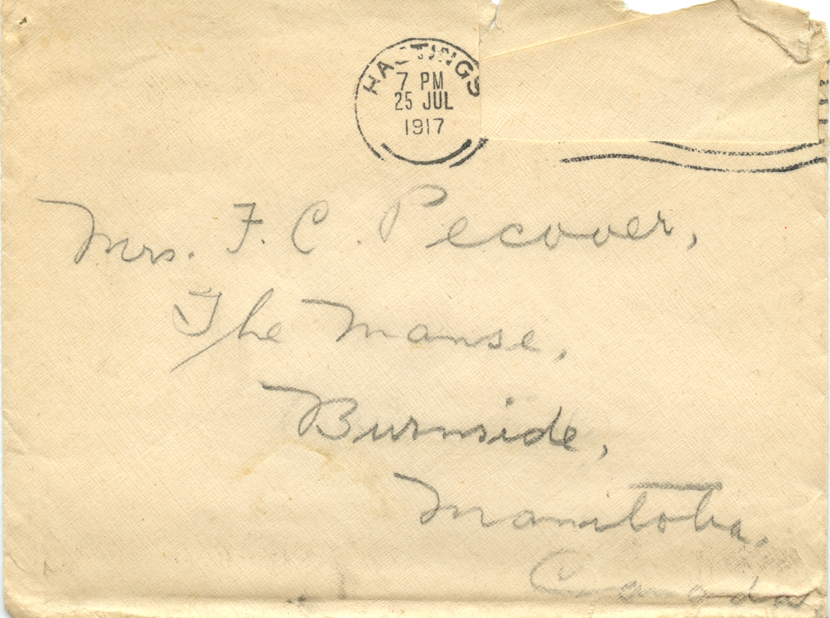 HASTINGS
7 PM
25 JUL
1917
Mrs. F. C. Pecover,
The Manse,
Burnside,
Manitoba.
Canada